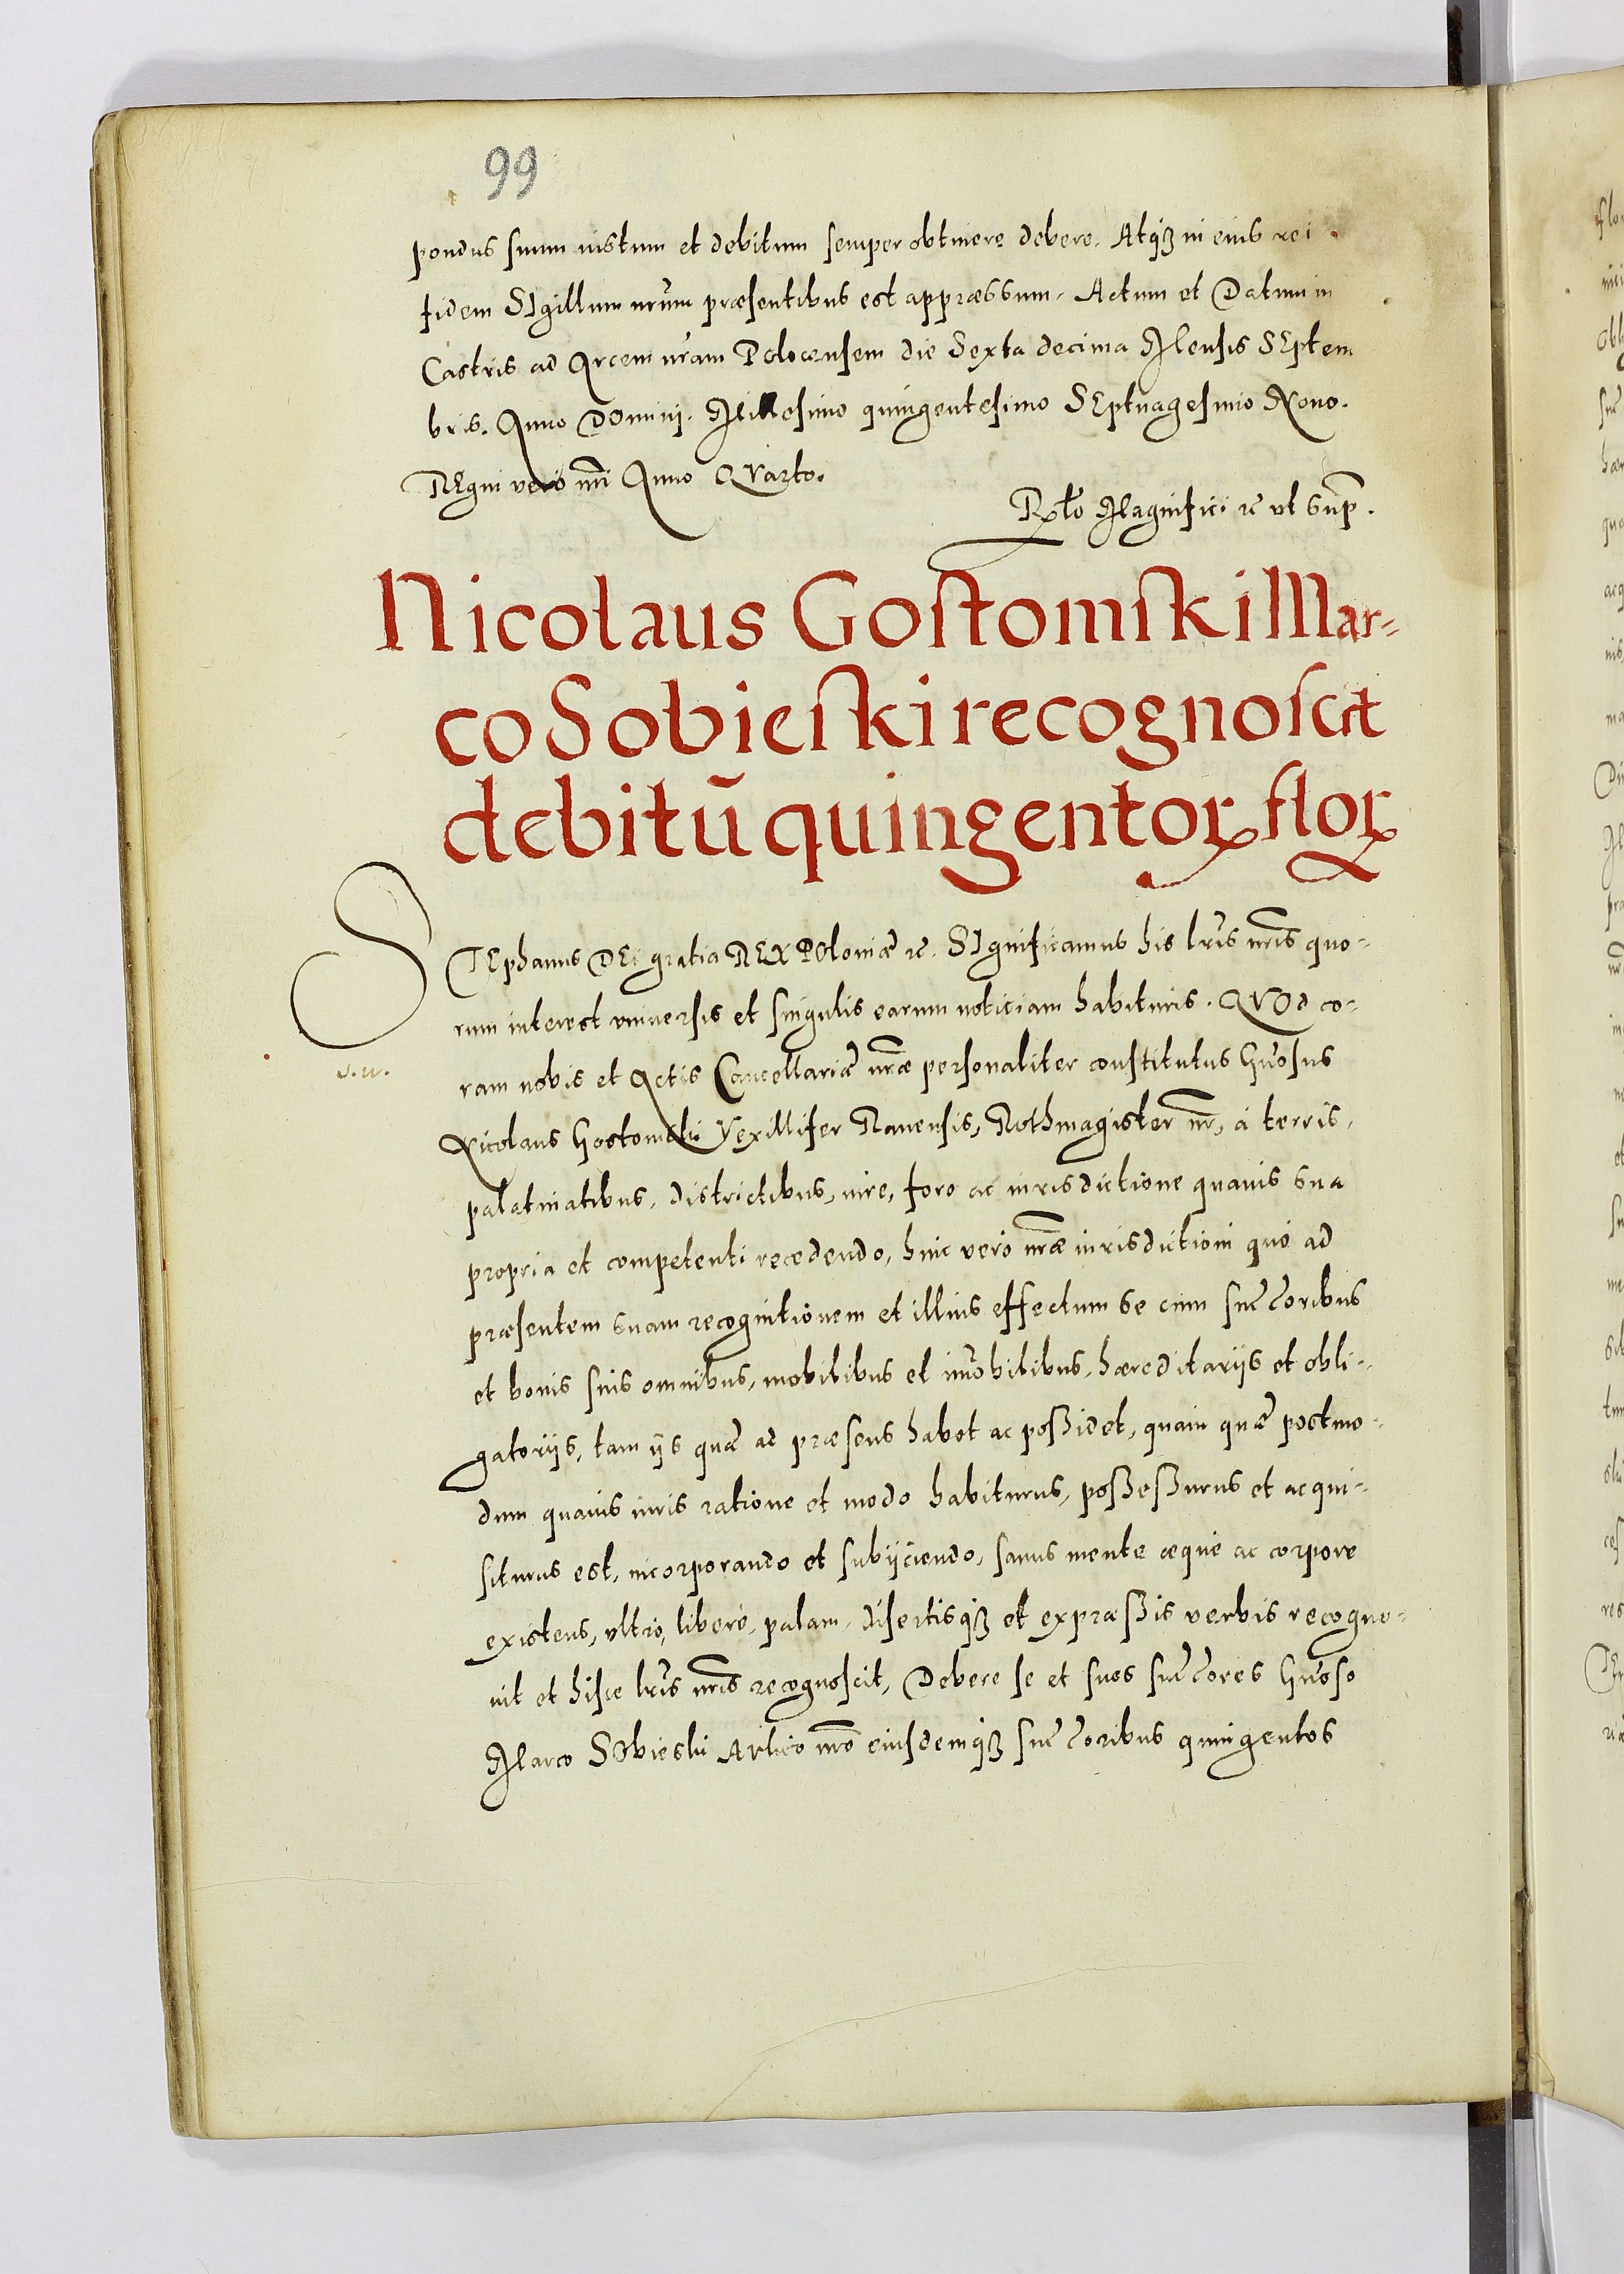 99
pondus suum iustum et debitum semper obtinere debere. Atqꝫ in eius rei
fidem SIgillum nr̃um præsentibus est appræssum. Actum et Datum in
Castris ad Arcem nr̃am Polocensem die Sexta decima Mensis SEptem
bris. Anno DOminij. Millesimo quingentesimo SEptuagesimo Nono.
REgni vero nr̃i Anno QVarto.
Rłto Magnifici ꝛc ut supͣ.
Nicolaus Gostomski Mar-
co Sobieski recognoscit
debitū quingentoꝝ floꝝ
STEphanus DEi gratia REX POloniæ ꝛc. SIgnificamus his lr̃is nr̃is quo-
rum interest vniuersis et singulis earum noticiam habituris. QVOd co-
ram nobis et Actis Cancellariæ nr̃æ personaliter constitutus Gn̄osus
Nicolaus Gostomski Vexillifer Rauensis, Rothmagister nr̃, à terris,
palatinatibus, districtibus, iure, foro ac iurisdictione quauis sua
propria et competenti recedendo, huic verò nr̃æ iurisdictioni quò ad
præsentem suam recognitionem et illius effectum se cum succ̄oribus
et bonis suis omnibus, mobilibus et im̄obilibus, hæreditarijs et obli-
gatorijs, tam ijs quæ ad præsens habet ac poßidet, quàm quæ postmo-
dum quauis iuris ratione et modo habiturus, poßeßurus et acqui-
siturus est, incorporando et subijciendo, sanus mente æquè ac corpore
existens, vltrò, liberè, palam, disertisqꝫ et expræßis verbis recogno-
uit et hisce lr̃is nr̃is recognoscit, Debere se et suos succ̄ores Gn̄oso
Marco SObieski Aulico nr̃o eiusdemqꝫ succ̄oribus quingentos